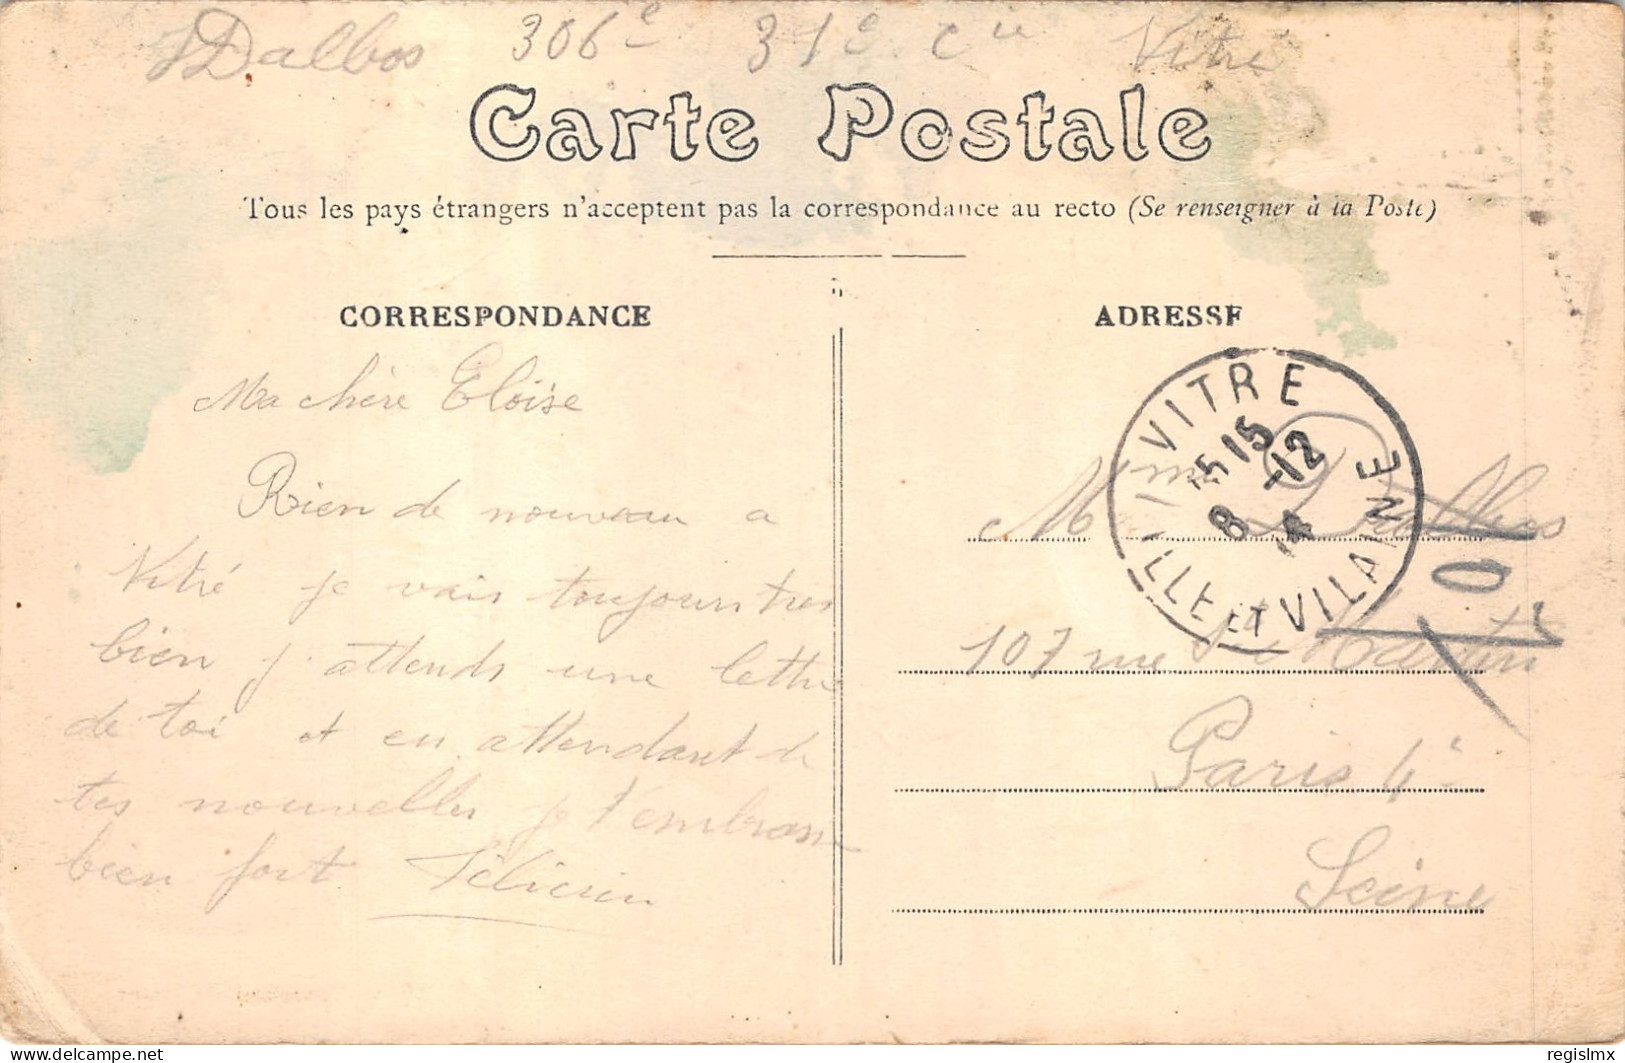 Dalbos 306e 31e Cie Vitré
Carte Postale
Tous les pays étrangers n'acceptent pas la correspondance au recto (Se renseigner à la Poste)
CORRESPONDANCE
Ma chère Eloïse
Rien de nouveau a
Vitré je vais toujours tres
bien j'attends une lettre
de toi et en attendant de
tes nouvelles je t'embrasse
bien fort Félicien
ADRESSE
VITRE
15 15
8 -12
14
ILLE ET VILAINE
Mme Dalbos
107 rue St Martin
Paris 4e
Seine
delcampe.net
regislmx